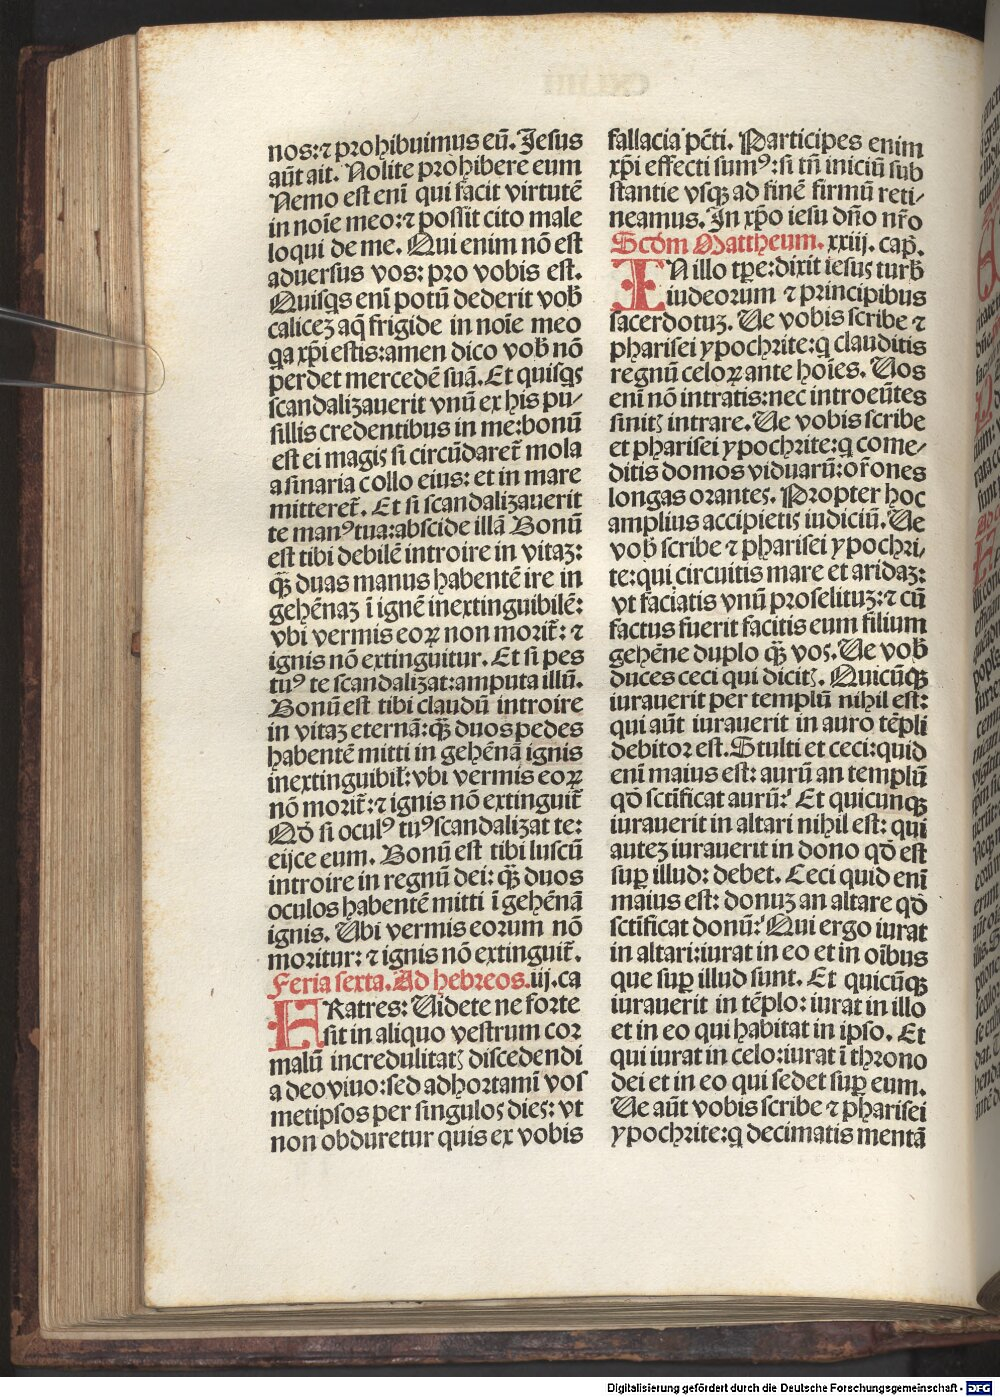 nos: ⁊ prohibuimus eū. Jesus
aūt ait. Nolite prohibere eum
Nemo est enī qui facit virtutē
in noīe meo: ⁊ possit cito male
loqui de me. Qui enim nō est
aduersus vos: pro vobis est.
Quisqs enī potū dederit vob̄
calicez aq̄ frigide in noīe meo
qa xp̄i estis: amen dico vob̄ nō
perdet mercedē suā. Et quisqs
scandalizauerit vnū ex his pu⸗
sillis credentibus in me: bonū
est ei magis si circūdaret̄ mola
asinaria collo eius: et in mare
mitteret̄. Et si scandalizauerit
te manꝰ tua: abscide illā Bonū
est tibi debilē introire in vitaz:
q̄ꝫ duas manus habentē ire in
gehēnaz ī ignē inextinguibilē:
vbi vermis eoꝝ non morit̄: ⁊
ignis nō extinguitur. Et si pes
tuꝰ te scandalizat: amputa illū.
Bonū est tibi claudū introire
in vitaz eternā: q̄ꝫ duos pedes
habentē mitti in gehēnā ignis
inextinguibil̄: vbi vermis eoꝝ
nō morit̄: ⁊ ignis nō extinguit̄
Qd̄ si oculꝰ tuꝰ scandalizat te:
eijce eum. Bonū est tibi luscū
introire in regnū dei: q̄ꝫ duos
oculos habentē mitti ī gehēnā
ignis. Ubi vermis eorum nō
moritur: ⁊ ignis nō extinguit̄.
Feria sexta. Ad hebreos. iij. ca
FRatres: Videte ne forte
sit in aliquo vestrum cor
malū incredulitatꝭ discedendi
a deo viuo: sed adhortamī vos
metipsos per singulos dies: vt
non obduretur quis ex vobis
fallacia pc̄ti. Participes enim
xp̄i effecti sumꝰ: si tn̄ iniciū sub
stantie vsqꝫ ad finē firmū reti⸗
neamus. In xp̄o iesu dn̄o nr̄o
Scd̄m Mattheum. xxiij. cap̄.
IN illo tp̄e: dixit iesus turb̄
iudeorum ⁊ principibus
sacerdotuz. Ve vobis scribe ⁊
pharisei ypochrite: q clauditis
regnū celoꝝ ante hoīes. Vos
enī nō intratis: nec introeūtes
sinitꝭ intrare. Ve vobis scribe
et pharisei ypochrite: q come⸗
ditis domos viduarū: or̄ones
longas orantes. Propter hoc
amplius accipietis iudiciū. Ve
vob̄ scribe ⁊ pharisei ypochri⸗
te: qui circuitis mare et aridaz:
vt faciatis vnū proselituz: ⁊ cū
factus fuerit facitis eum filium
gehēne duplo q̄ꝫ vos. Ve vob̄
duces ceci qui dicitꝭ. Quicūqꝫ
iurauerit per templū nihil est:
qui aūt iurauerit in auro tēpli
debitor est. Stulti et ceci: quid
enī maius est: aurū an templū
qd̄ sctīficat aurū: Et quicunqꝫ
iurauerit in altari nihil est: qui
autez iurauerit in dono qd̄ est
sup̄ illud: debet. Ceci quid enī
maius est: donuz an altare qd̄
sctīficat donū: Qui ergo iurat
in altari: iurat in eo et in oībus
que sup̄ illud sunt. Et quicūqꝫ
iurauerit in tēplo: iurat in illo
et in eo qui habitat in ipso. Et
qui iurat in celo: iurat ī throno
dei et in eo qui sedet sup̄ eum.
Ve aūt vobis scribe ⁊ pharisei
ypochrite: q decimatis mentā
Digitalisierung gefördert durch die Deutsche Forschungsgemeinschaft - DFG